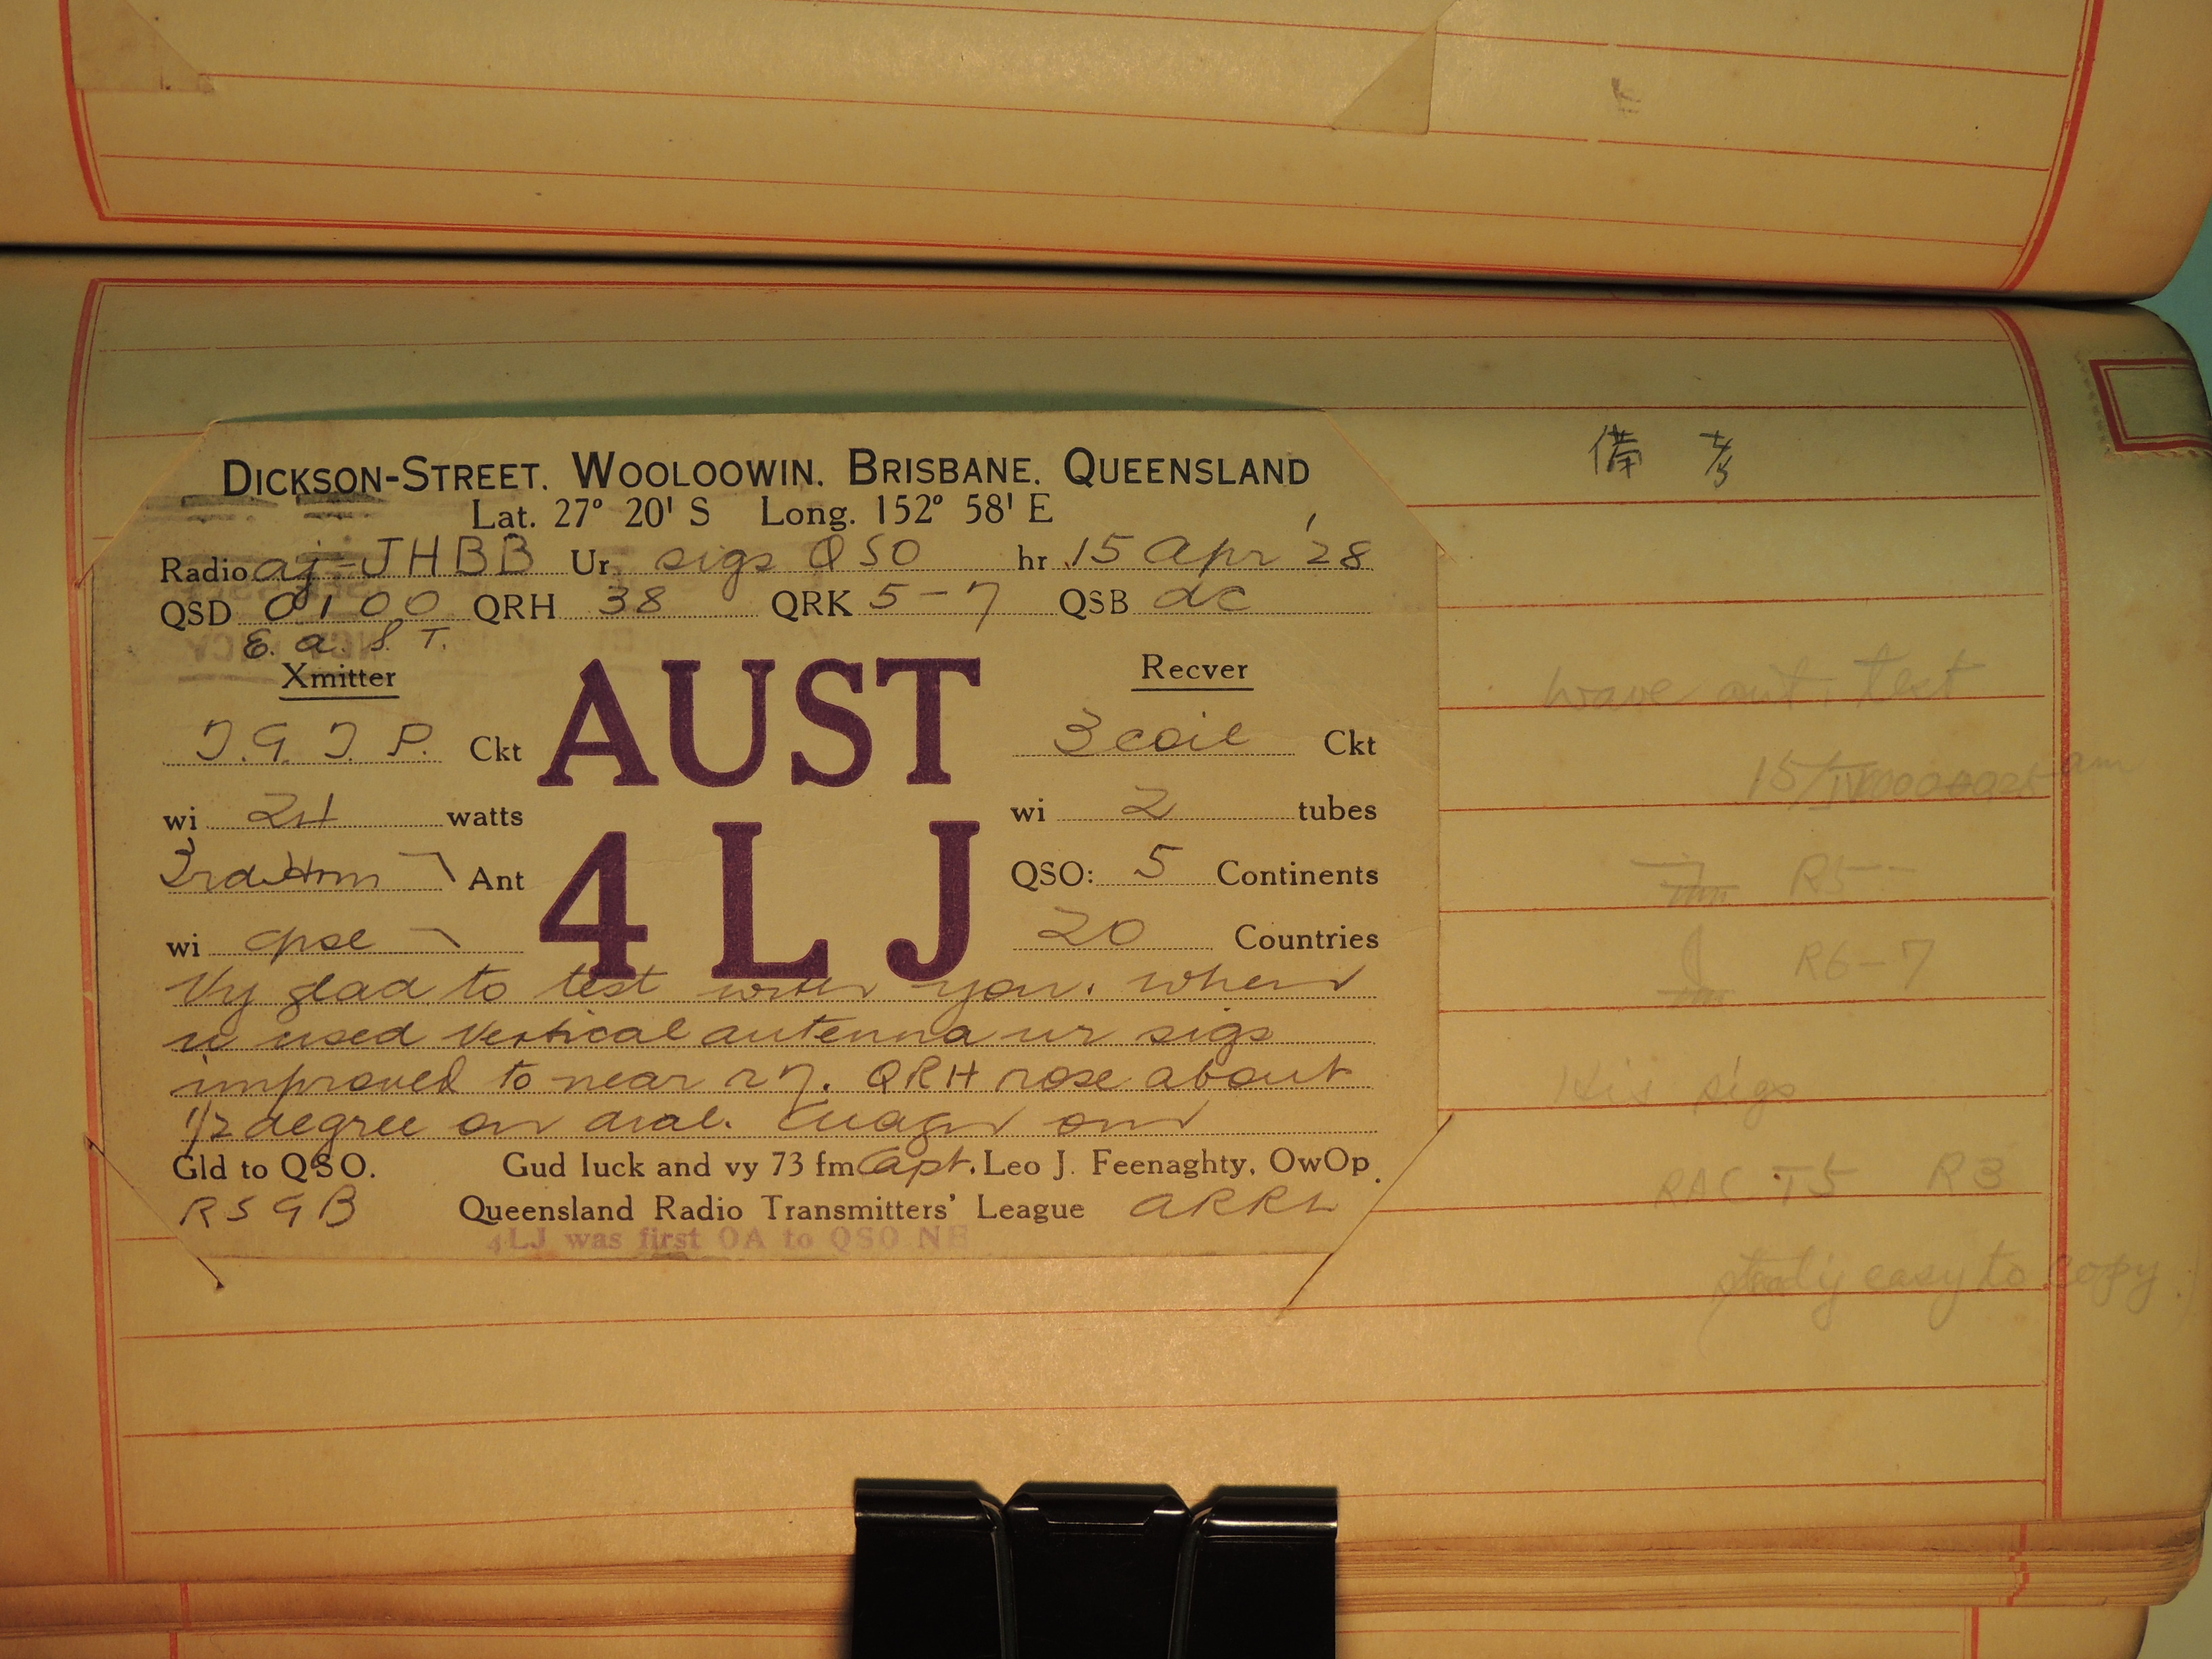 DICKSON-STREET. WOOLOOWIN. BRISBANE. QUEENSLAND
Lat. 27° 20' S Long. 152° 58' E
Radio aj-JHBB Ur sigs QSO hr 15 Apr '28
QSD 0100 QRH 38 QRK 5-7 QSB dc
E. a. S. T.
Xmitter
T.G.T.P. Ckt
wi watts
Ant
wi cpse
AUST
4LJ
Recver
3 coil Ckt
wi 2 tubes
QSO: 5 Continents
20 Countries
Vy glad to test with you. when
u used vertical antenna ur sigs
improved to near r7. QRH rose about
1/2 degree on dial.
Gld to QSO. Gud luck and vy 73 fm Capt. Leo J. Feenaghty, OwOp.
RSGB Queensland Radio Transmitters' League ARRL
4LJ was first OA to QSO NE
備考
wave ant. test
15/IV am
R5--
R6-7
His sigs
RAC T5 R3
easy to copy.